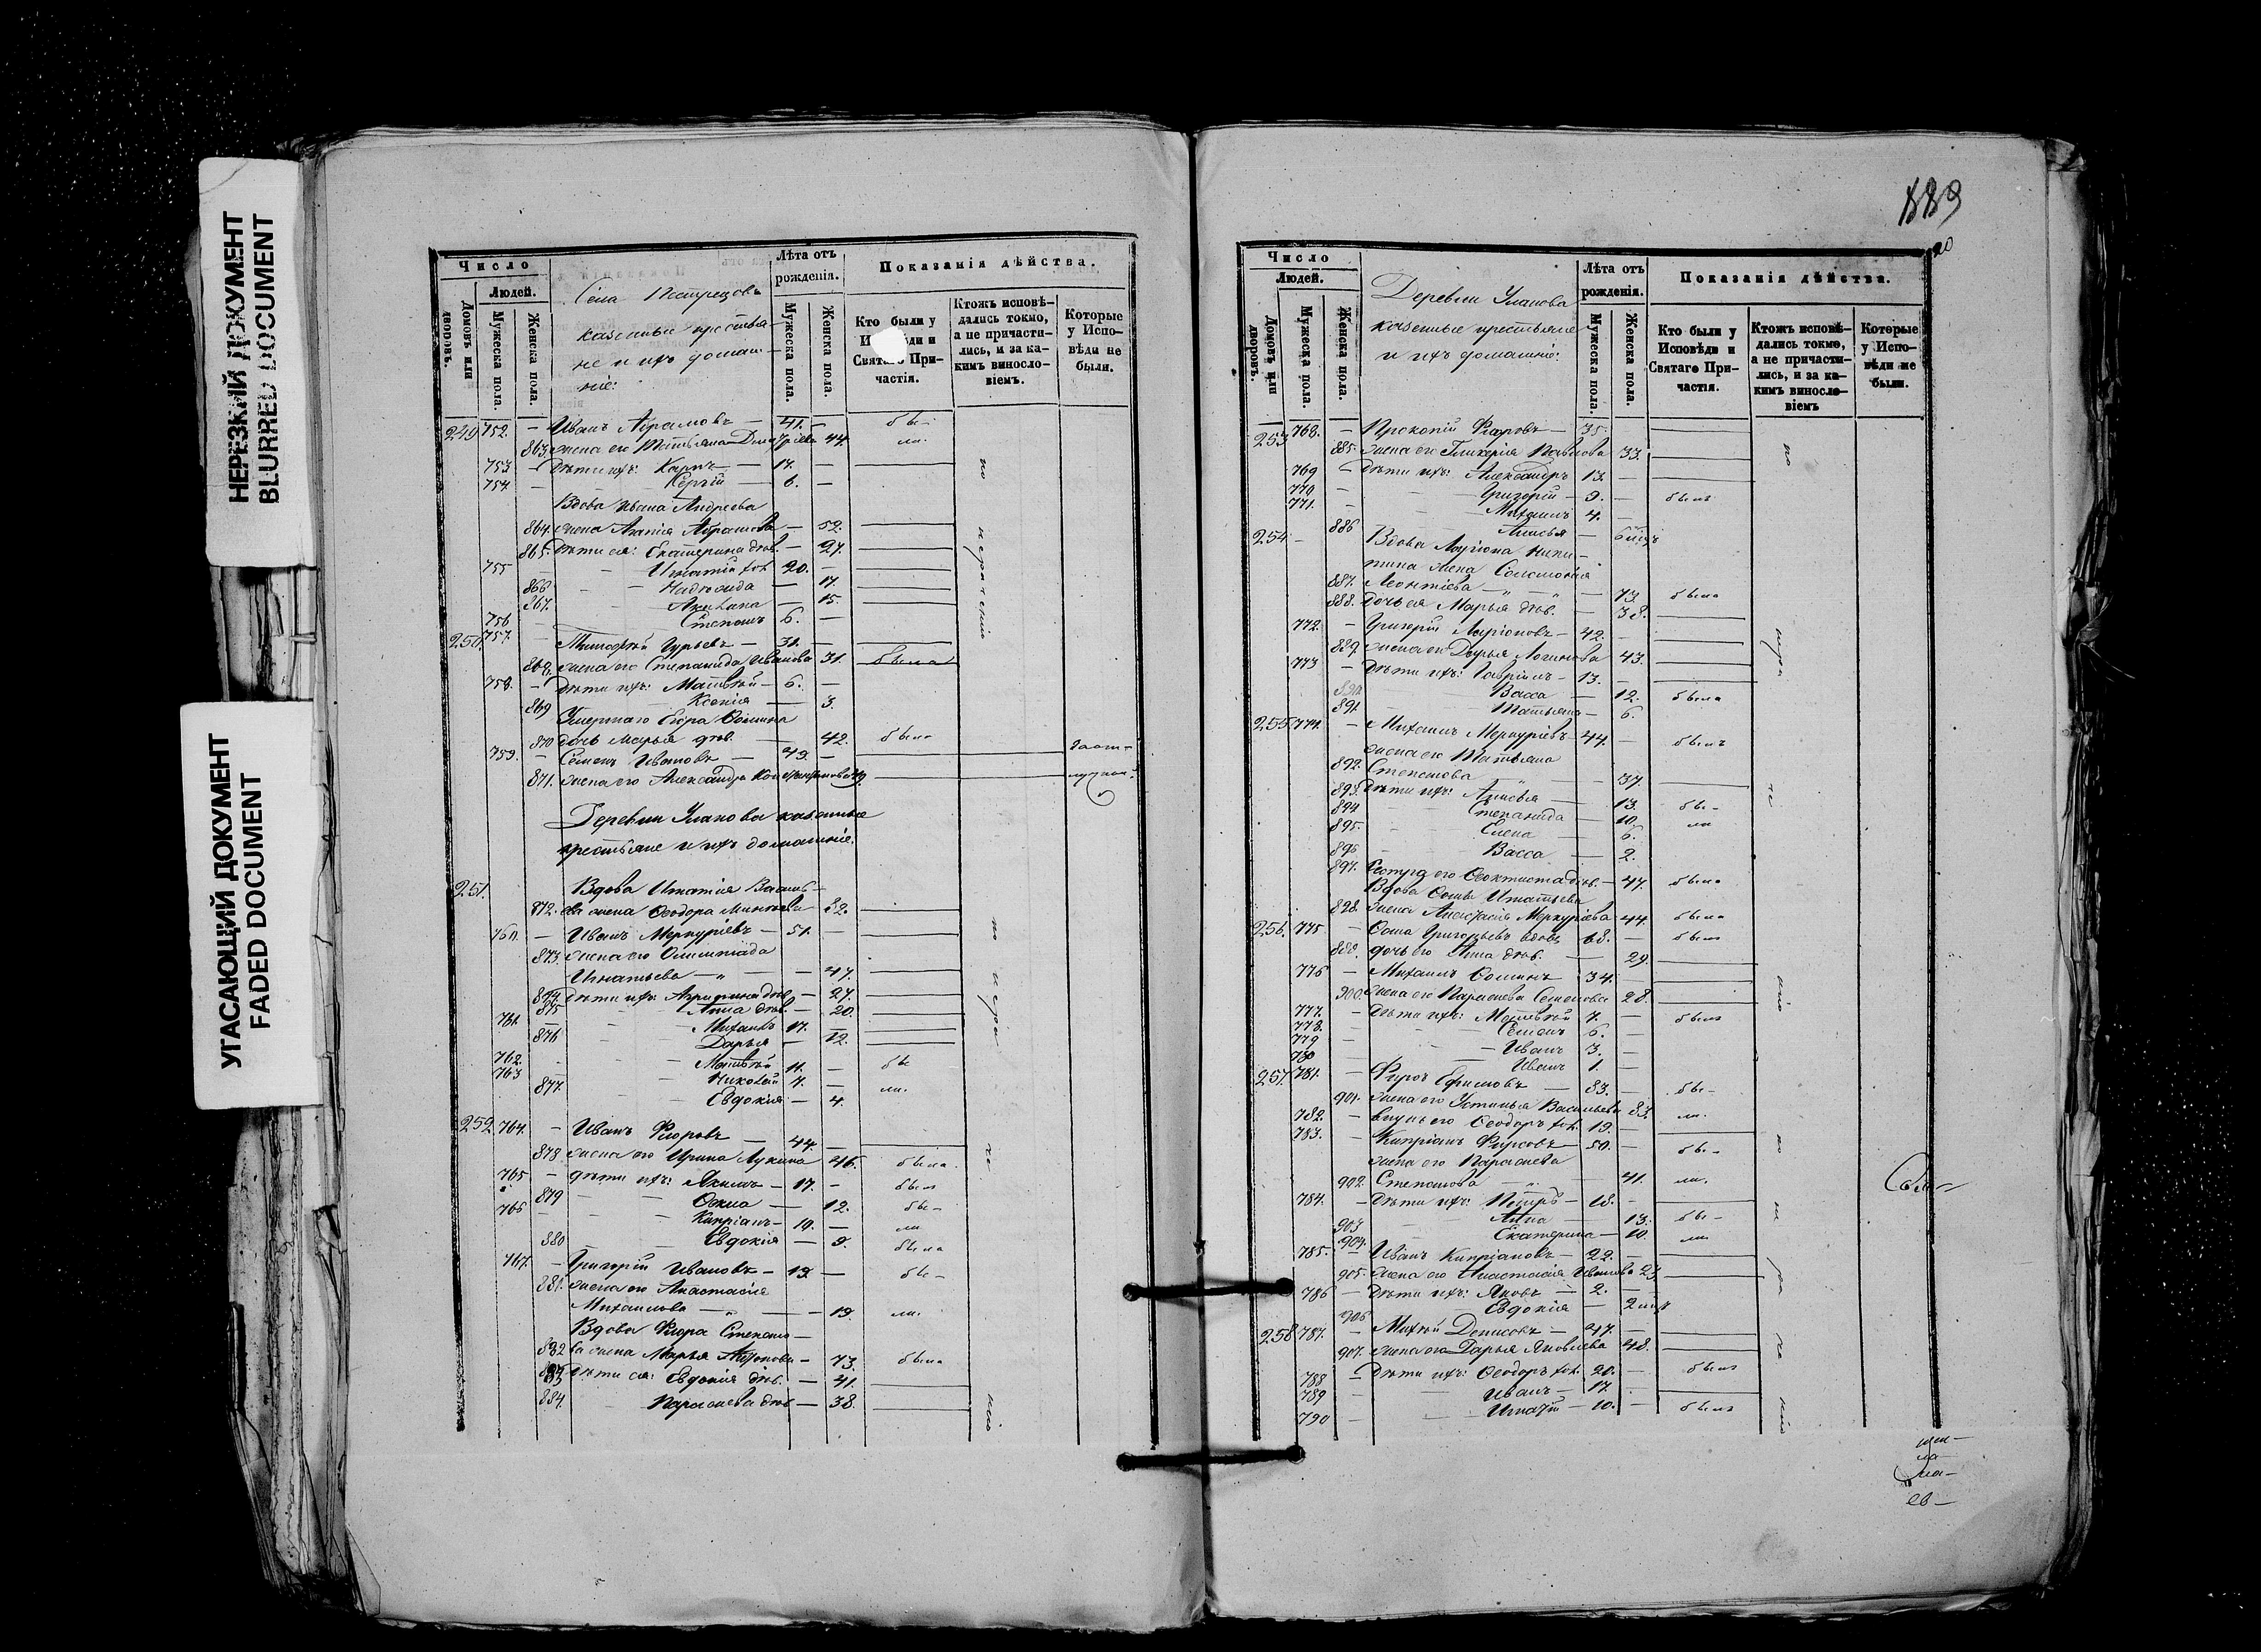 НЕРЕЗКИЙ ДОКУМЕНТ
BLURRED DOCUMENT
УГАСАЮЩИЙ ДОКУМЕНТ
FADED DOCUMENT
Число
Людей.
Домовъ или дворовъ.
Мужеска пола.
Женска пола.
Села
казенные крестья-
не и ихъ домаш-
ніе:
Лѣта отъ рожденія.
Мужеска пола.
Женска пола.
Показанія дѣйства.
Кто были у
и
Святаго При-
частія.
Ктожъ исповѣ-
дались токмо,
а не причасти-
лись, и за ка-
кимъ винос­ло-
віемъ.
Которые
у Испо-
вѣди не
были.
249 752. — Иванъ Абрамовъ — 41. — бы-
863. жена его Татьяна Димитріева 44. ли.
753 — Дѣти ихъ: Карпъ — 17. —
754 — Сергій — 6. —
Вдова Ивана Андреева
864. жена Агапія Абрамова — 52.
865. Дѣти ея: Екатерина дѣв. — 27.
755 — Игнатій хол. 20. —
866 — 17.
867. — 15.
756 — Степанъ 6. —
250. 757. — Тимофей Гурьевъ — 31. —
868. жена его Степанида Иванова 31. была
758. — Дѣти ихъ: Матвѣй — 6. —
869 Ксенія — 3.
Умершаго Егора Ѳомина
870 дочь Марья дѣв. — 42. была
759. — Семенъ Ивановъ — 49. —
871. жена его Александра Константинова 49.
Деревни Уланова казенные
крестьяне и ихъ домашніе.
251. Вдова Игнатія Василь-
872. ева жена Ѳеодора — 82.
760. — Иванъ Меркуріевъ — 51. —
873. жена его Олимпіада
Игнатьева — 47.
874. Дѣти ихъ: Агрипина дѣв. — 27.
875 Анна дѣв. — 20.
761. Михаилъ 17. —
876 Дарья — 12.
762. Матвѣй 11. — бы
763 Николай 7. — ли.
877. Евдокія — 4.
252 764. — Иванъ Флоровъ — 44. —
878 жена его Ирина Лукина 46. была.
765 — дѣти ихъ: Якимъ — 17. — былъ
879 Ѳекла — 12. бы-
766 Кипріанъ — 10. — ли
880 Евдокія — 9. была
767. — Григорій Ивановъ — 19. — бы-
881. жена его Анастасія
Михаилова — 19. ли.
Вдова Флора Степано-
882 ва жена Марья Антонова — 73 была
883 Дѣти ея: Евдокія дѣв. — 41.
884. Параскева дѣв — 38.
889
Число
Людей.
Домовъ или дворовъ.
Мужеска пола.
Женска пола.
Деревни Уланова
казенные крестьяне
и ихъ домашніе:
Лѣта отъ рожденія.
Мужеска пола.
Женска пола.
Показанія дѣйства.
Кто были у
Исповѣди и
Святаго При-
частія.
Ктожъ исповѣ-
дались токмо,
а не причасти-
лись, и за ка-
кимъ винос­ло-
віемъ
Которые
у Испо-
вѣди не
были.
253 768. — Прокопій Флоровъ — 35.
885. жена его Гликерія Павлова 33.
769 — Дѣти ихъ: Александръ 13. —
770 — Григорій — 9. — былъ
771. — Михаилъ 4. —
886 Анисья — 6
254 — Вдова Ларіона Ники-
тина жена Соломонія
887. Леонтіева — 73. была
888. дочь ея Марья дѣв. — 38.
772. — Григорій Ларіоновъ — 42. —
889. жена его Дарья Логинова 43.
773 — Дѣти ихъ: Гавріилъ — 13. —
890 Васса — 12. была
891. Татьяна — 6.
255 774. — Михаилъ Меркуріевъ 44. — былъ
жена его Татьяна
892. Степанова — 37.
893. Дѣти ихъ: Анисья — 13. бы-
894 Степанида — 10. ли
895. Елена — 6.
896 Васса — 2.
897. Сестра его Ѳеоктиста дѣв. — 47. была
Вдова Ѳомы Игнатьева
898. жена Анастасія Меркуріева 44. была
256. 775 — Ѳома Григорьевъ вдовъ 68. — былъ
899. дочь его Анна дѣв. — 29.
776 — Михаилъ Ѳоминъ 34.
900. жена его Параскева Семенова 28.
777. — Дѣти ихъ: Матвѣй 7. — былъ
778. — Семенъ 6. —
779 — Иванъ 3. —
780 — Иванъ 1. —
257 781. — Фирсъ Ефимовъ — 83. — бы-
901. жена его Устинья Васильева 83 ли.
782. — внукъ его Ѳеодоръ хол. 19. —
783. — Кипріанъ Фирсовъ — 50. — бы-
жена его Параскева
902. Степанова — 41. ли.
784. — Дѣти ихъ: Петръ — 18. —
903 Анна — 13. бы-
904. Екатерина — 10. ли
785. — Иванъ Кипріановъ — 22. —
905. жена его Анастасія Иванова 23.
786 — Дѣти ихъ: Яковъ — 2. —
906 Евдокія — 2
258 787. — Михѣй Денисовъ — 47. —
907. жена его Дарья Яковлева 48.
788 — Дѣти ихъ: Ѳеодоръ хол. 20. — былъ
789 — Иванъ — 17. —
790 — Игнатій — 10. — былъ